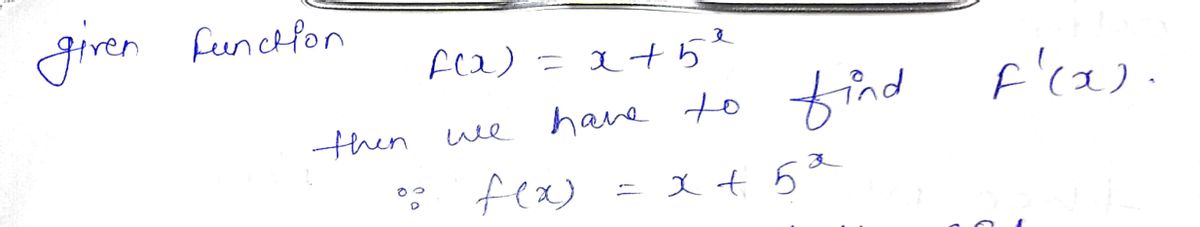 given function
f(x) = x + 5^x
then we have to find f'(x).
∵ f(x) = x + 5^x